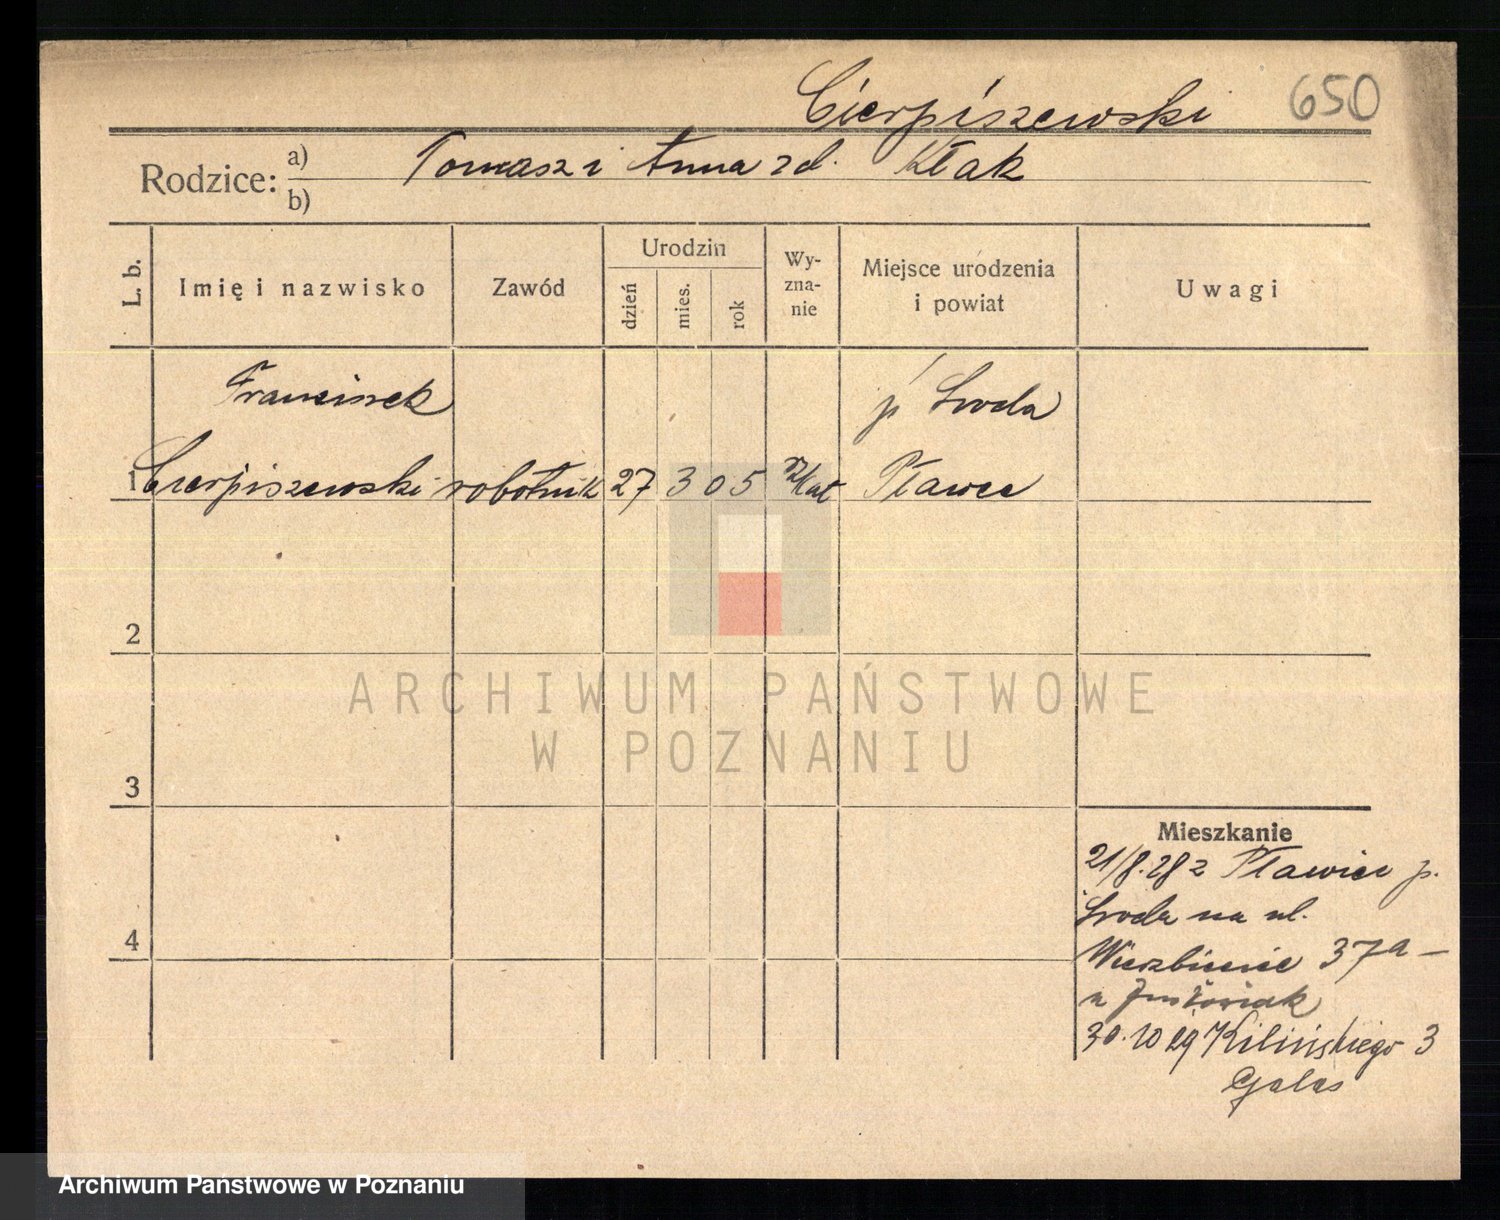 Cierpiszewski 650
Rodzice: a) Tomasz i Anna zd. Kłak
b)
L. b. Imię i nazwisko Zawód Urodzin dzień mies. rok Wyznanie Miejsce urodzenia i powiat Uwagi
Franciszek p Środa
1 Cierpiszewski robotnik 27 3 05 rz kat Pławce
2
ARCHIWUM PAŃSTWOWE
W POZNANIU
3
Mieszkanie
21/8.28 z Pławiec p.
Środa na ul.
4
Wierzbięcie 37a –
u
30.10 29 Kilińskiego 3
Galas
Archiwum Państwowe w Poznaniu